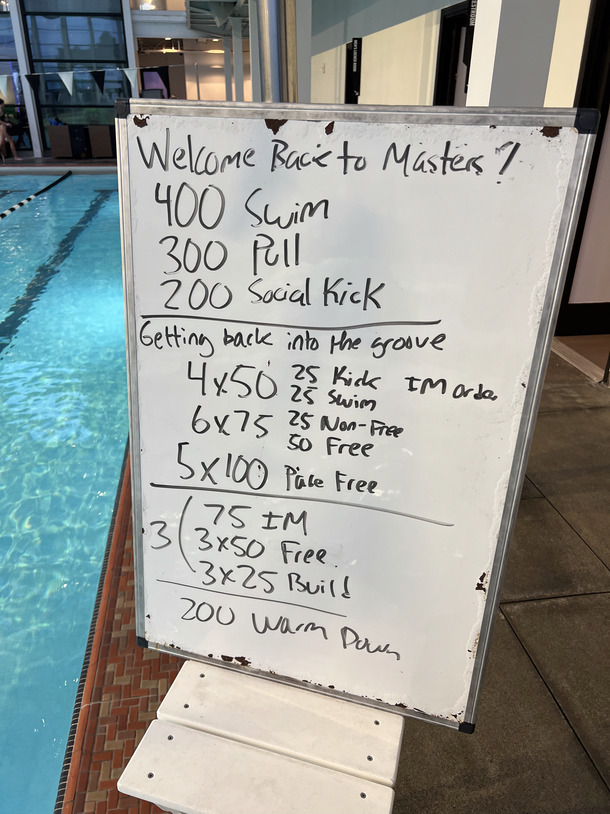 Welcome Back to Masters!
400 Swim
300 Pull
200 Social Kick
Getting back into the groove
4x50 25 Kick IM Order
25 Swim
6x75 25 Non-Free
50 Free
5x100 Pace Free
3( 75 IM
3x50 Free
3x25 Build
200 Warm Down